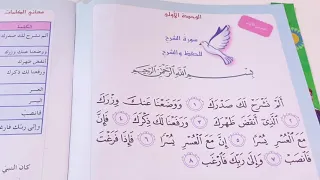 الوحدة الأولى
سورة الشرح
للحفظ والشرح
بِسْمِ اللَّهِ الرَّحْمَٰنِ الرَّحِيمِ
أَلَمْ نَشْرَحْ لَكَ صَدْرَكَ ١ وَوَضَعْنَا عَنكَ وِزْرَكَ
٢ الَّذِي أَنقَضَ ظَهْرَكَ ٣ وَرَفَعْنَا لَكَ ذِكْرَكَ ٤ فَإِنَّ
مَعَ الْعُسْرِ يُسْرًا ٥ إِنَّ مَعَ الْعُسْرِ يُسْرًا ٦ فَإِذَا فَرَغْتَ
فَانصَبْ ٧ وَإِلَىٰ رَبِّكَ فَارْغَب ٨
معاني الكلمات
الكلمة
ألم نشرح لك صدرك
ووضعنا عنك وزرك
أنقض ظهرك
ورفعنا لك ذكرك
العسر
اليسر
فانصب
وإلى ربك فارغب
كان النبي